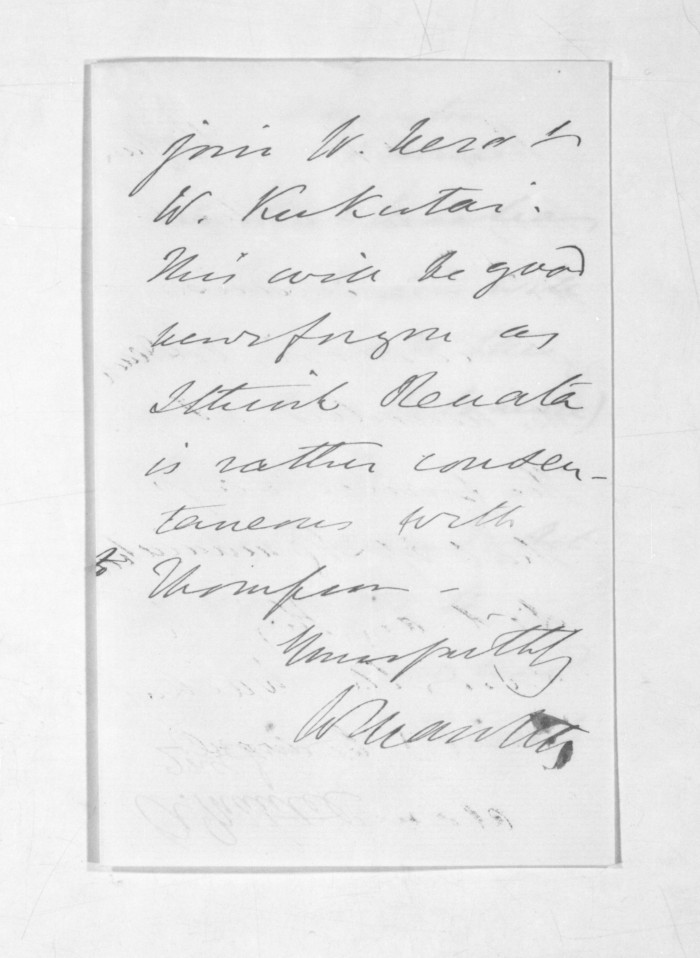 join W. Nero &
W. Kukutai.
This will be good
news for you as
I think Renata
is rather consen-
taneous with
Thompson -
Yours faithfully